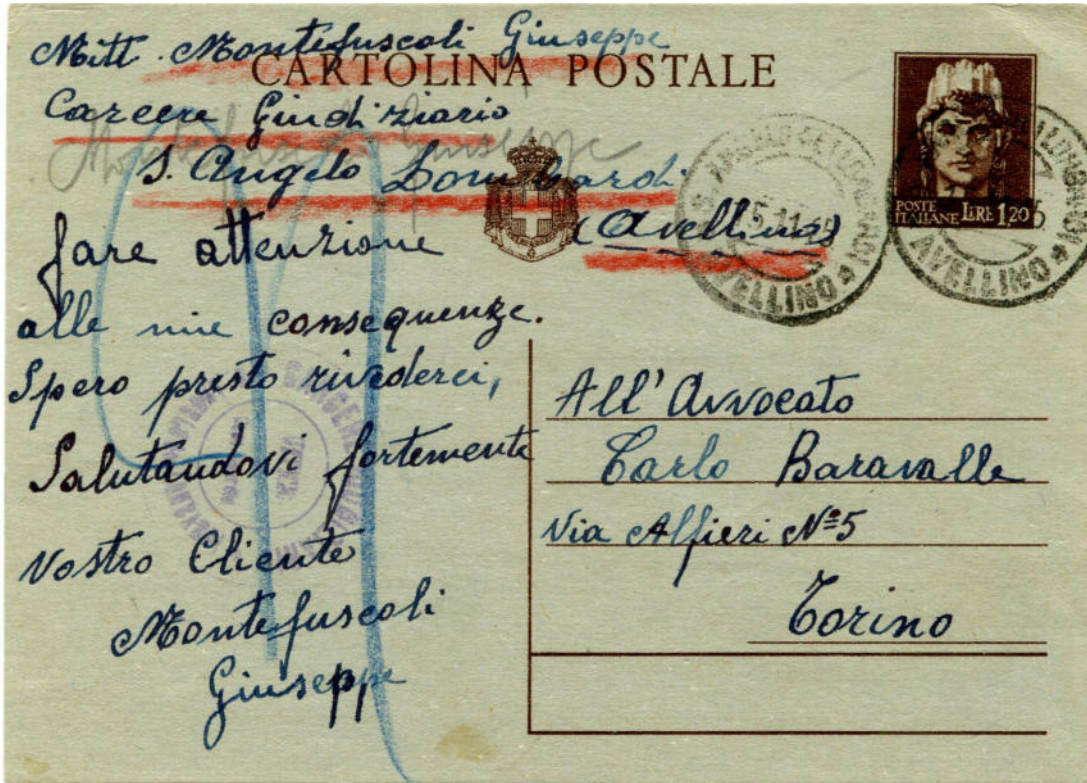 Mitt. Montefuscoli Giuseppe
CARTOLINA POSTALE
Carcere Giudiziario
Montefuscoli Giuseppe
S. Angelo Lombardi
(Avellino)
POSTE ITALIANE LIRE 1,20
AVELLINO
AVELLINO
fare attenzione
alle mie consequenze.
Spero presto rivederci,
Salutandovi fortemente
Vostro Cliente
Montefuscoli
Giuseppe
All' Avvocato
Carlo Baravalle
Via Alfieri Nº 5
Torino